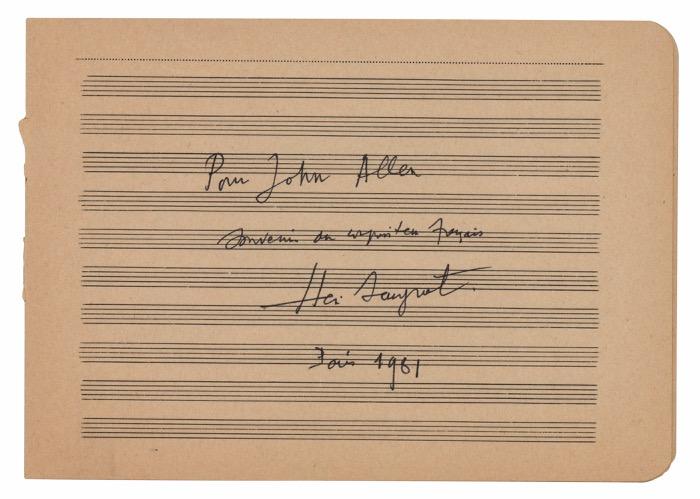 Pour John Allen
souvenir du compositeur français
Henri Sauguet.
Paris